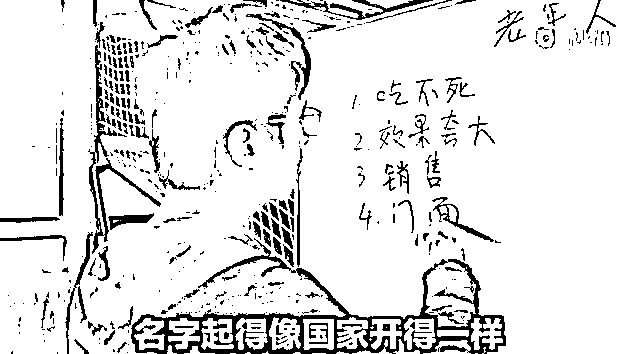 老年人
1. 吃不死
2. 效果夸大
3 销售
4. 门面
名字起得像国家开得一样